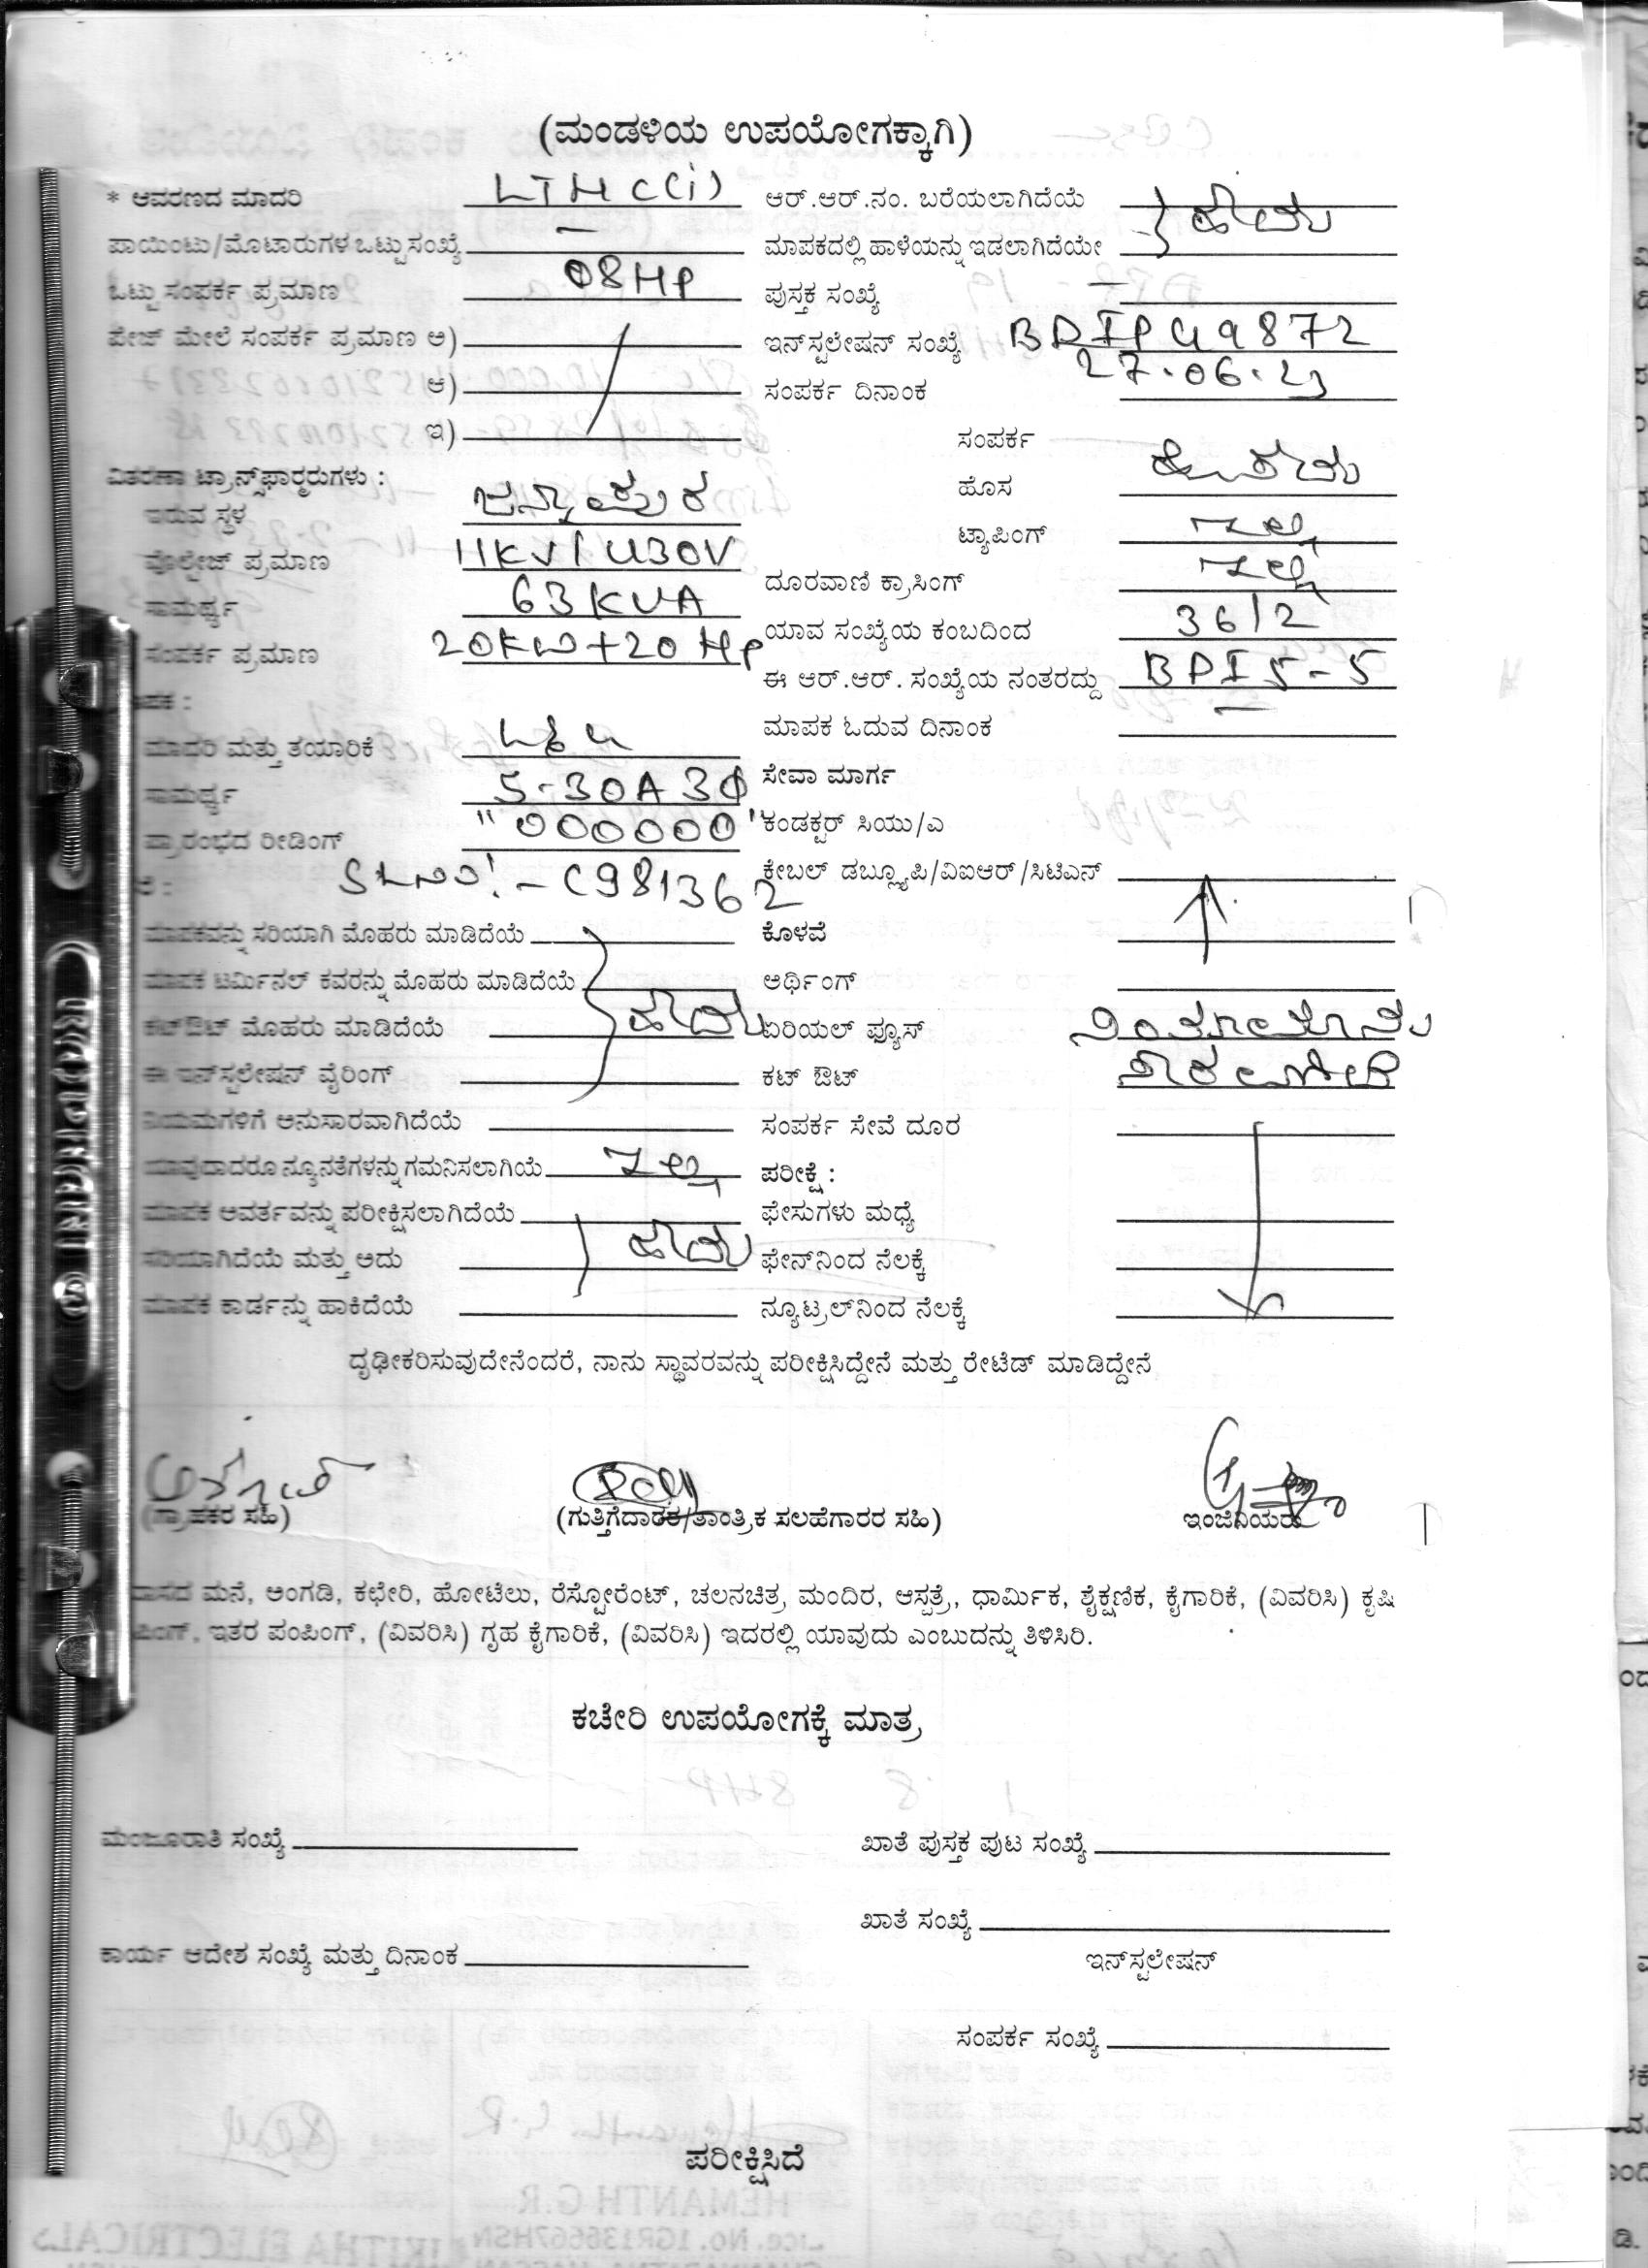 (ಮಂಡಳಿಯ ಉಪಯೋಗಕ್ಕಾಗಿ)
* ಆವರಣದ ಮಾದರಿ LTH C(i) ಆರ್.ಆರ್.ನಂ. ಬರೆಯಲಾಗಿದೆಯೆ ಹೌದು
ಪಾಯಿಂಟು/ಮೊಟಾರುಗಳ ಒಟ್ಟು ಸಂಖ್ಯೆ — ಮಾಪಕದಲ್ಲಿ ಹಾಳೆಯನ್ನು ಇಡಲಾಗಿದೆಯೇ
ಒಟ್ಟು ಸಂಪರ್ಕ ಪ್ರಮಾಣ 08HP ಪುಸ್ತಕ ಸಂಖ್ಯೆ —
ಪೇಜ್ ಮೇಲೆ ಸಂಪರ್ಕ ಪ್ರಮಾಣ ಅ) ಇನ್‌ಸ್ಟಲೇಷನ್ ಸಂಖ್ಯೆ BDIP49872
ಆ) ಸಂಪರ್ಕ ದಿನಾಂಕ 27.06.23
ಇ) ಸಂಪರ್ಕ
ವಿತರಣಾ ಟ್ರಾನ್ಸ್‌ಫಾರ್ಮರುಗಳು : ಹೊಸ
ಇರುವ ಸ್ಥಳ ಜನ್ನಾಪುರ ಟ್ಯಾಪಿಂಗ್ ಇಲ್ಲ
ವೊಲ್ಟೇಜ್ ಪ್ರಮಾಣ 11KV/430V ದೂರವಾಣಿ ಕ್ರಾಸಿಂಗ್ ಇಲ್ಲ
ಸಾಮರ್ಥ್ಯ 63KVA ಯಾವ ಸಂಖ್ಯೆಯ ಕಂಬದಿಂದ 36/2
ಸಂಪರ್ಕ ಪ್ರಮಾಣ 20KW+20HP ಈ ಆರ್.ಆರ್. ಸಂಖ್ಯೆಯ ನಂತರದ್ದು BPI5-5
ಪಕ : ಮಾಪಕ ಓದುವ ದಿನಾಂಕ —
ಮಾದರಿ ಮತ್ತು ತಯಾರಿಕೆ L&T ಸೇವಾ ಮಾರ್ಗ
ಸಾಮರ್ಥ್ಯ 5-30A 3Φ ಕಂಡಕ್ಟರ್ ಸಿಯು/ಎ
ಪ್ರಾರಂಭದ ರೀಡಿಂಗ್ "000000" ಕೇಬಲ್ ಡಬ್ಲ್ಯೂಪಿ/ವಿಐಆರ್/ಸಿಟಿಎನ್
SLNO:- C981362
ಮಾಪಕವನ್ನು ಸರಿಯಾಗಿ ಮೊಹರು ಮಾಡಿದೆಯೆ ಕೊಳವೆ
ಮಾಪಕ ಟರ್ಮಿನಲ್ ಕವರನ್ನು ಮೊಹರು ಮಾಡಿದೆಯೆ ಅರ್ಥಿಂಗ್
ಕಟ್‌ಔಟ್ ಮೊಹರು ಮಾಡಿದೆಯೆ ಹೌದು ಏರಿಯಲ್ ಫ್ಯೂಸ್
ಈ ಇನ್‌ಸ್ಟಲೇಷನ್ ವೈರಿಂಗ್ ಕಟ್ ಔಟ್
ನಿಯಮಗಳಿಗೆ ಅನುಸಾರವಾಗಿದೆಯೆ ಸಂಪರ್ಕ ಸೇವೆ ದೂರ
ಯಾವುದಾದರೂ ನ್ಯೂನತೆಗಳನ್ನು ಗಮನಿಸಲಾಗಿಯೆ ಇಲ್ಲ ಪರೀಕ್ಷೆ :
ಮಾಪಕ ಆವರ್ತವನ್ನು ಪರೀಕ್ಷಿಸಲಾಗಿದೆಯೆ ಫೇಸುಗಳು ಮಧ್ಯೆ
ಸರಿಯಾಗಿದೆಯೆ ಮತ್ತು ಅದು ಹೌದು ಫೇಸ್‌ನಿಂದ ನೆಲಕ್ಕೆ
ಮಾಪಕ ಕಾರ್ಡನ್ನು ಹಾಕಿದೆಯೆ ನ್ಯೂಟ್ರಲ್‌ನಿಂದ ನೆಲಕ್ಕೆ
ದೃಢೀಕರಿಸುವುದೇನೆಂದರೆ, ನಾನು ಸ್ಥಾವರವನ್ನು ಪರೀಕ್ಷಿಸಿದ್ದೇನೆ ಮತ್ತು ರೇಟೆಡ್ ಮಾಡಿದ್ದೇನೆ
(ಗ್ರಾಹಕರ ಸಹಿ) (ಗುತ್ತಿಗೆದಾರರ/ತಾಂತ್ರಿಕ ಸಲಹೆಗಾರರ ಸಹಿ) ಇಂಜಿನಿಯರು
ವಾಸದ ಮನೆ, ಅಂಗಡಿ, ಕಛೇರಿ, ಹೋಟೆಲು, ರೆಸ್ಟೋರೆಂಟ್, ಚಲನಚಿತ್ರ ಮಂದಿರ, ಆಸ್ಪತ್ರೆ, ಧಾರ್ಮಿಕ, ಶೈಕ್ಷಣಿಕ, ಕೈಗಾರಿಕೆ, (ವಿವರಿಸಿ) ಕೃಷಿ
ಪಿಂಗ್, ಇತರ ಪಂಪಿಂಗ್, (ವಿವರಿಸಿ) ಗೃಹ ಕೈಗಾರಿಕೆ, (ವಿವರಿಸಿ) ಇದರಲ್ಲಿ ಯಾವುದು ಎಂಬುದನ್ನು ತಿಳಿಸಿರಿ.
ಕಚೇರಿ ಉಪಯೋಗಕ್ಕೆ ಮಾತ್ರ
ಮಂಜೂರಾತಿ ಸಂಖ್ಯೆ ಖಾತೆ ಪುಸ್ತಕ ಪುಟ ಸಂಖ್ಯೆ
ಖಾತೆ ಸಂಖ್ಯೆ
ಕಾರ್ಯ ಆದೇಶ ಸಂಖ್ಯೆ ಮತ್ತು ದಿನಾಂಕ ಇನ್‌ಸ್ಟಲೇಷನ್
ಸಂಪರ್ಕ ಸಂಖ್ಯೆ
ಪರೀಕ್ಷಿಸಿದೆ